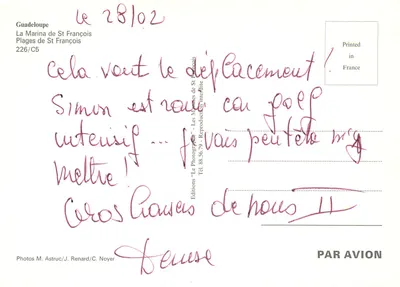 le 28/02
Guadeloupe
La Marina de St François
Plages de St François
226/C6
Printed
in
France
Cela vaut le déplacement !
Simon est ravi car golf
intensif... je vais peut être m'y
mettre !
Gros baisers de nous II
Denise
Editions "Le Photographe" - Les
Tél. 88.56.79 - Reproduction interdite
Photos M. Astruc/J. Renard/C. Noyer
PAR AVION